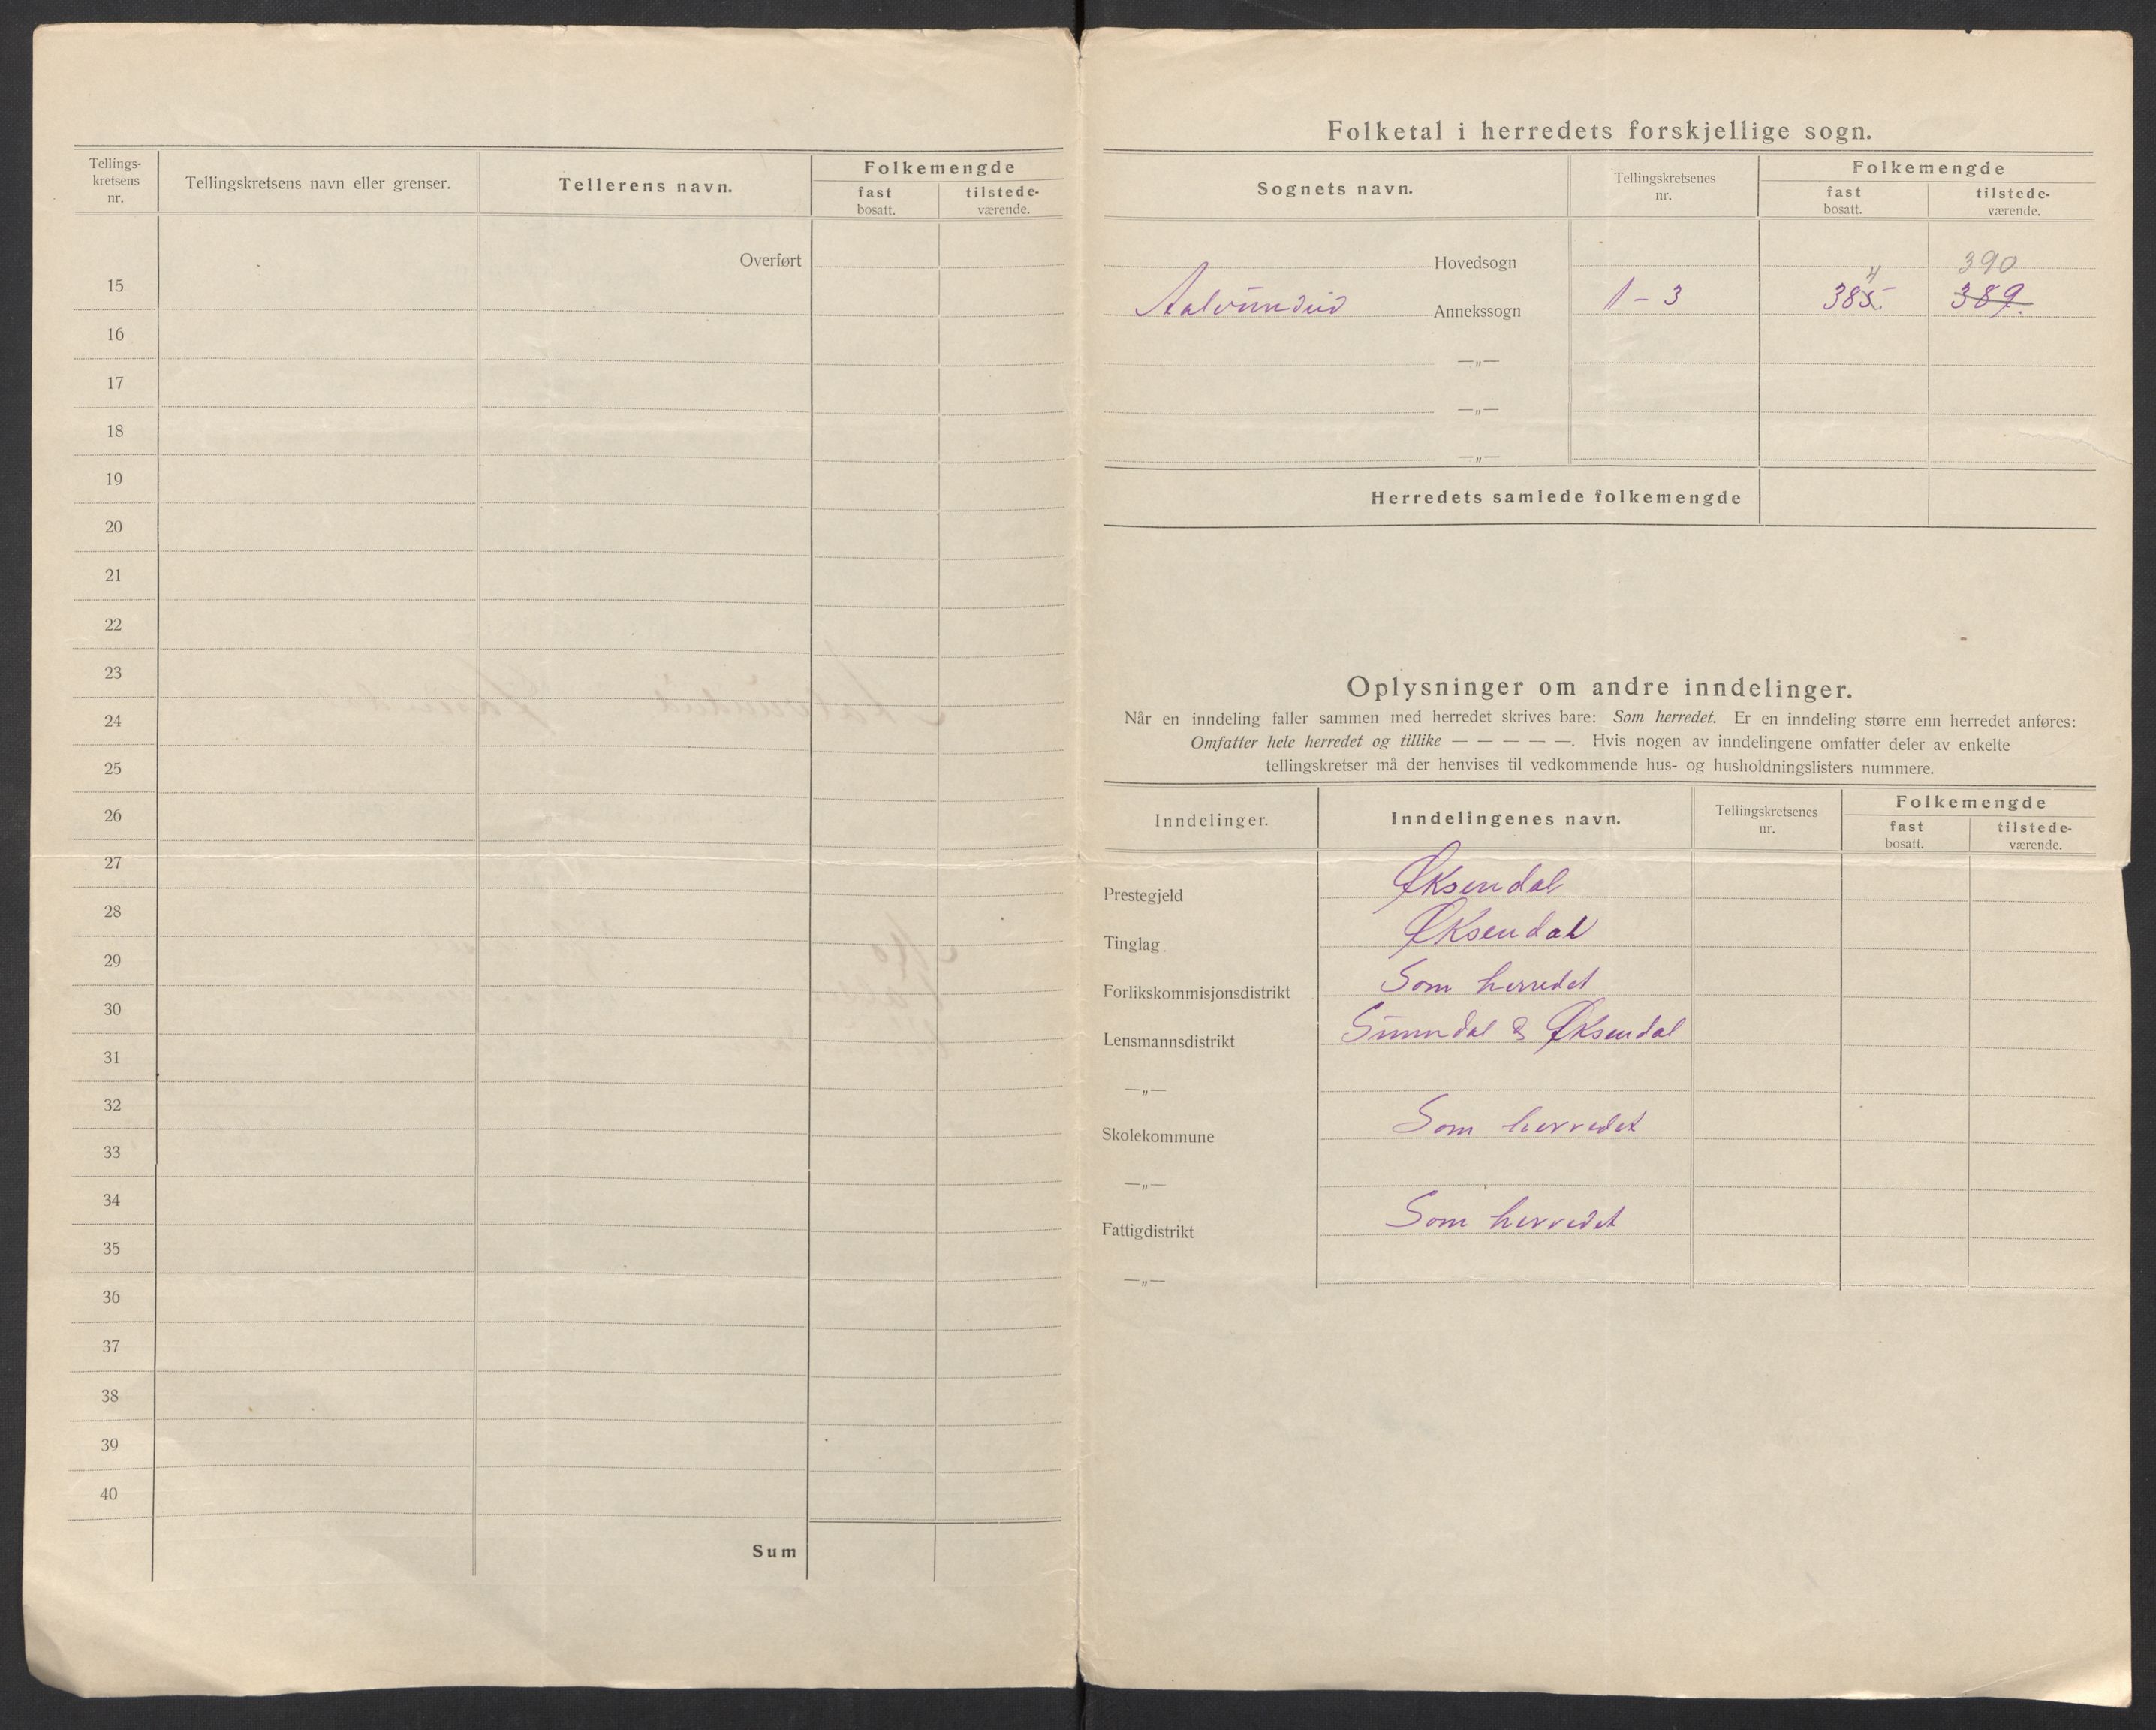 Tellings-
kretsens
nr.
Tellingskretsens navn eller grenser.
Tellerens navn.
Folkemengde
fast
bosatt.
tilstede-
værende.
Overført
15
16
17
18
19
20
21
22
23
24
25
26
27
28
29
30
31
32
33
34
35
36
37
38
39
40
Sum
Folketal i herredets forskjellige sogn.
Sognets navn.
Tellingskretsenes
nr.
Folkemengde
fast
bosatt.
tilstede-
værende.
Hovedsogn
390
4
Aalvundeid Annekssogn 1 - 3 385. 389.
—„—
—„—
—„—
Herredets samlede folkemengde
Oplysninger om andre inndelinger.
Når en inndeling faller sammen med herredet skrives bare: Som herredet. Er en inndeling større enn herredet anføres:
Omfatter hele herredet og tillike — — — — —. Hvis nogen av inndelingene omfatter deler av enkelte
tellingskretser må der henvises til vedkommende hus- og husholdningslisters nummere.
Inndelinger.
Inndelingenes navn.
Tellingskretsenes
nr.
Folkemengde
fast
bosatt.
tilstede-
værende.
Prestegjeld Øksendal
Tinglag Øksendal
Forlikskommisjonsdistrikt Som herredet
Lensmannsdistrikt Sunndal & Øksendal
—„—
Skolekommune Som herredet
—„—
Fattigdistrikt Som herredet
—„—